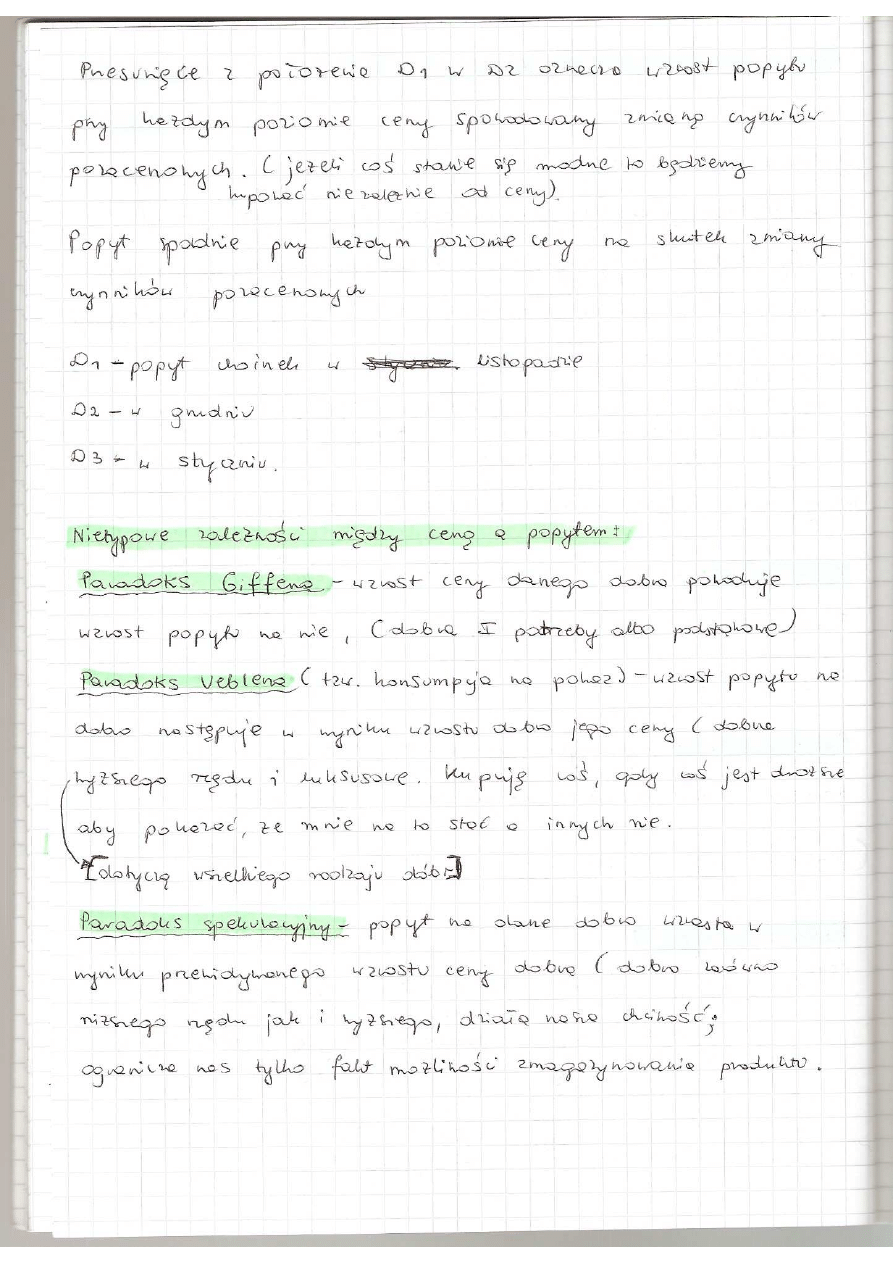 Przesunięcie z położenia D1 w D2 oznacza wzrost popytu
przy każdym poziomie ceny spowodowany zmianą czynników
pozacenowych. (jeżeli coś stanie się modne to będziemy
kupować niezależnie od ceny).
Popyt spadnie przy każdym poziomie ceny na skutek zmiany
czynników pozacenowych
D1 – popyt choinek w listopadzie
D2 – w grudniu
D3 – w styczniu.
Nietypowe zależności między ceną a popytem:
Paradoks Giffena – wzrost ceny danego dobra powoduje
wzrost popytu na nie, (dobra I potrzeby albo podstawowe)
Paradoks Veblena (tzw. konsumpcja na pokaz) – wzrost popytu na
dobro następuje w wyniku wzrostu dobra jego ceny (dobra
wyższego rzędu i luksusowe. Kupuję coś, gdy coś jest droższe
aby pokazać, że mnie na to stać a innych nie.
[dotyczą wszelkiego rodzaju dóbr]
Paradoks spekulacyjny – popyt na dane dobro wzrasta w
wyniku przewidywanego wzrostu ceny dobra (dobro zarówno
niższego rzędu jak i wyższego, działa nasza chciwość;
ogranicza nas tylko fakt możliwości zmagazynowania produktu.